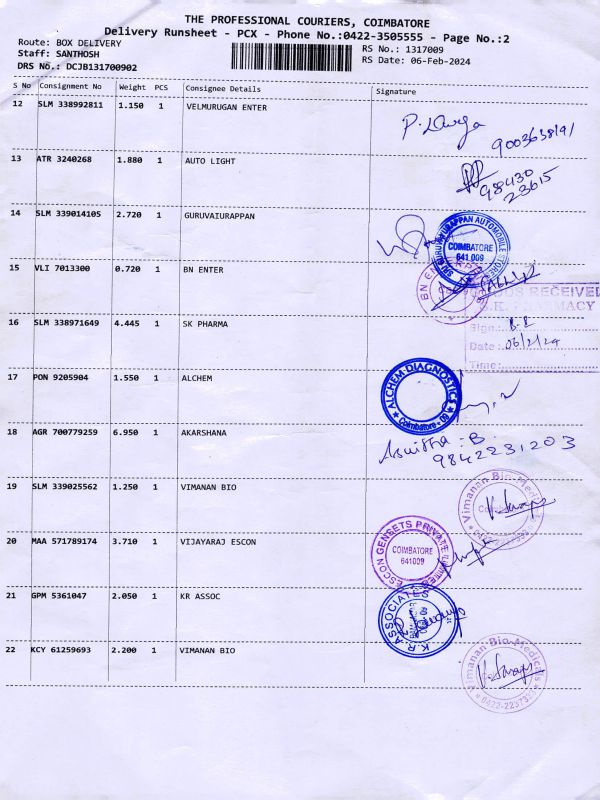 THE PROFESSIONAL COURIERS, COIMBATORE
Delivery Runsheet - PCX - Phone No.:0422-3505555 - Page No.:2
Route: BOX DELIVERY
Staff: SANTHOSH
DRS No.: DCJB131700902
RS No.: 1317009
RS Date: 06-Feb-2024
S No Consignment No Weight PCS Consignee Details Signature
12 SLM 338992811 1.150 1 VELMURUGAN ENTER
P. Durga
9003638191
13 ATR 3240268 1.880 1 AUTO LIGHT
98430
23615
14 SLM 339014105 2.720 1 GURUVAIURAPPAN
SRI GURUVAYURAPPAN AUTOMOBILE STORE
COIMBATORE
641 009
15 VLI 7013300 0.720 1 BN ENTER
BN
RECEIVED
S.K. PHARMACY
16 SLM 338971649 4.445 1 SK PHARMA
Sign:
Date: 06/2/24
Time:
17 PON 9205904 1.550 1 ALCHEM
ALCHEM DIAGNOSTICS
Coimbatore - 09
18 AGR 700779259 6.950 1 AKARSHANA
Aswitha . B
9842231203
19 SLM 339025562 1.250 1 VIMANAN BIO
Vimanan Bio-Medicals
20 MAA 571789174 3.710 1 VIJAYARAJ ESCON
ESCON GENSETS PRIVATE LIMITED
COIMBATORE
641009
21 GPM 5361047 2.050 1 KR ASSOC
K.R ASSOCIATES
22 KCY 61259693 2.200 1 VIMANAN BIO
Vimanan Bio-Medicals